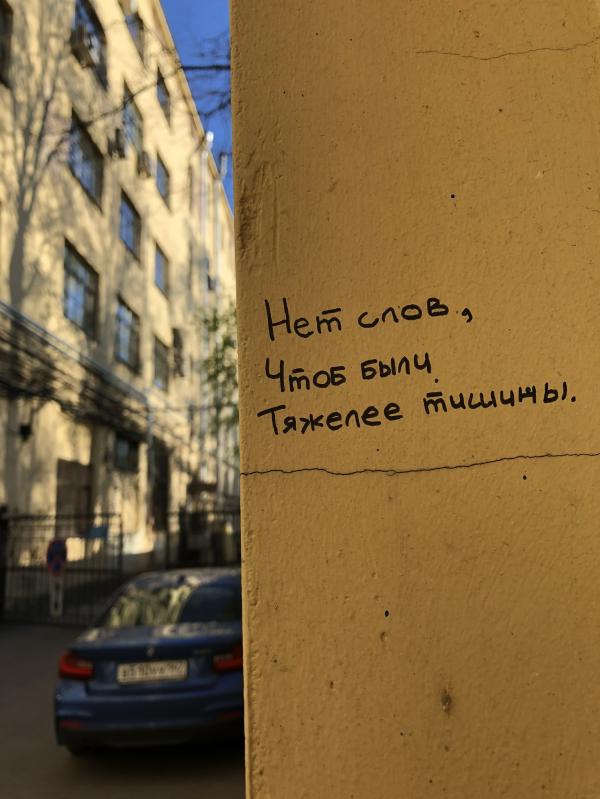 Нет слов,
Чтоб были
Тяжелее тишины.